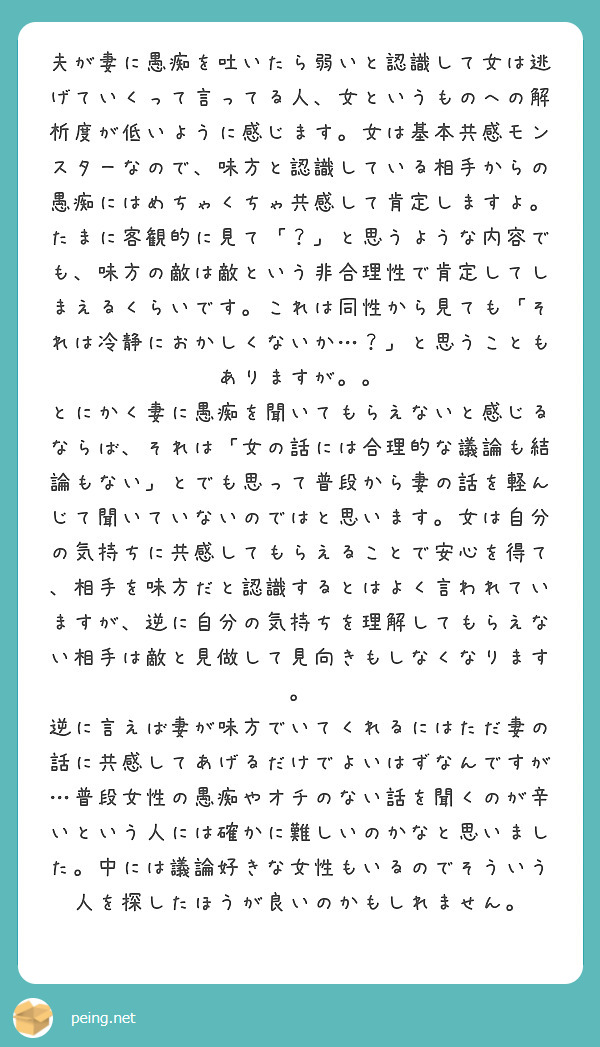 夫が妻に愚痴を吐いたら弱いと認識して女は逃
げていくって言ってる人、女というものへの解
析度が低いように感じます。女は基本共感モン
スターなので、味方と認識している相手からの
愚痴にはめちゃくちゃ共感して肯定しますよ。
たまに客観的に見て「？」と思うような内容で
も、味方の敵は敵という非合理性で肯定してし
まえるくらいです。これは同性から見ても「そ
れは冷静におかしくないか…？」と思うことも
ありますが。。
とにかく妻に愚痴を聞いてもらえないと感じる
ならば、それは「女の話には合理的な議論も結
論もない」とでも思って普段から妻の話を軽ん
じて聞いていないのではと思います。女は自分
の気持ちに共感してもらえることで安心を得て
、相手を味方だと認識するとはよく言われてい
ますが、逆に自分の気持ちを理解してもらえな
い相手は敵と見做して見向きもしなくなります
。
逆に言えば妻が味方でいてくれるにはただ妻の
話に共感してあげるだけでよいはずなんですが
…普段女性の愚痴やオチのない話を聞くのが辛
いという人には確かに難しいのかなと思いまし
た。中には議論好きな女性もいるのでそういう
人を探したほうが良いのかもしれません。
peing.net